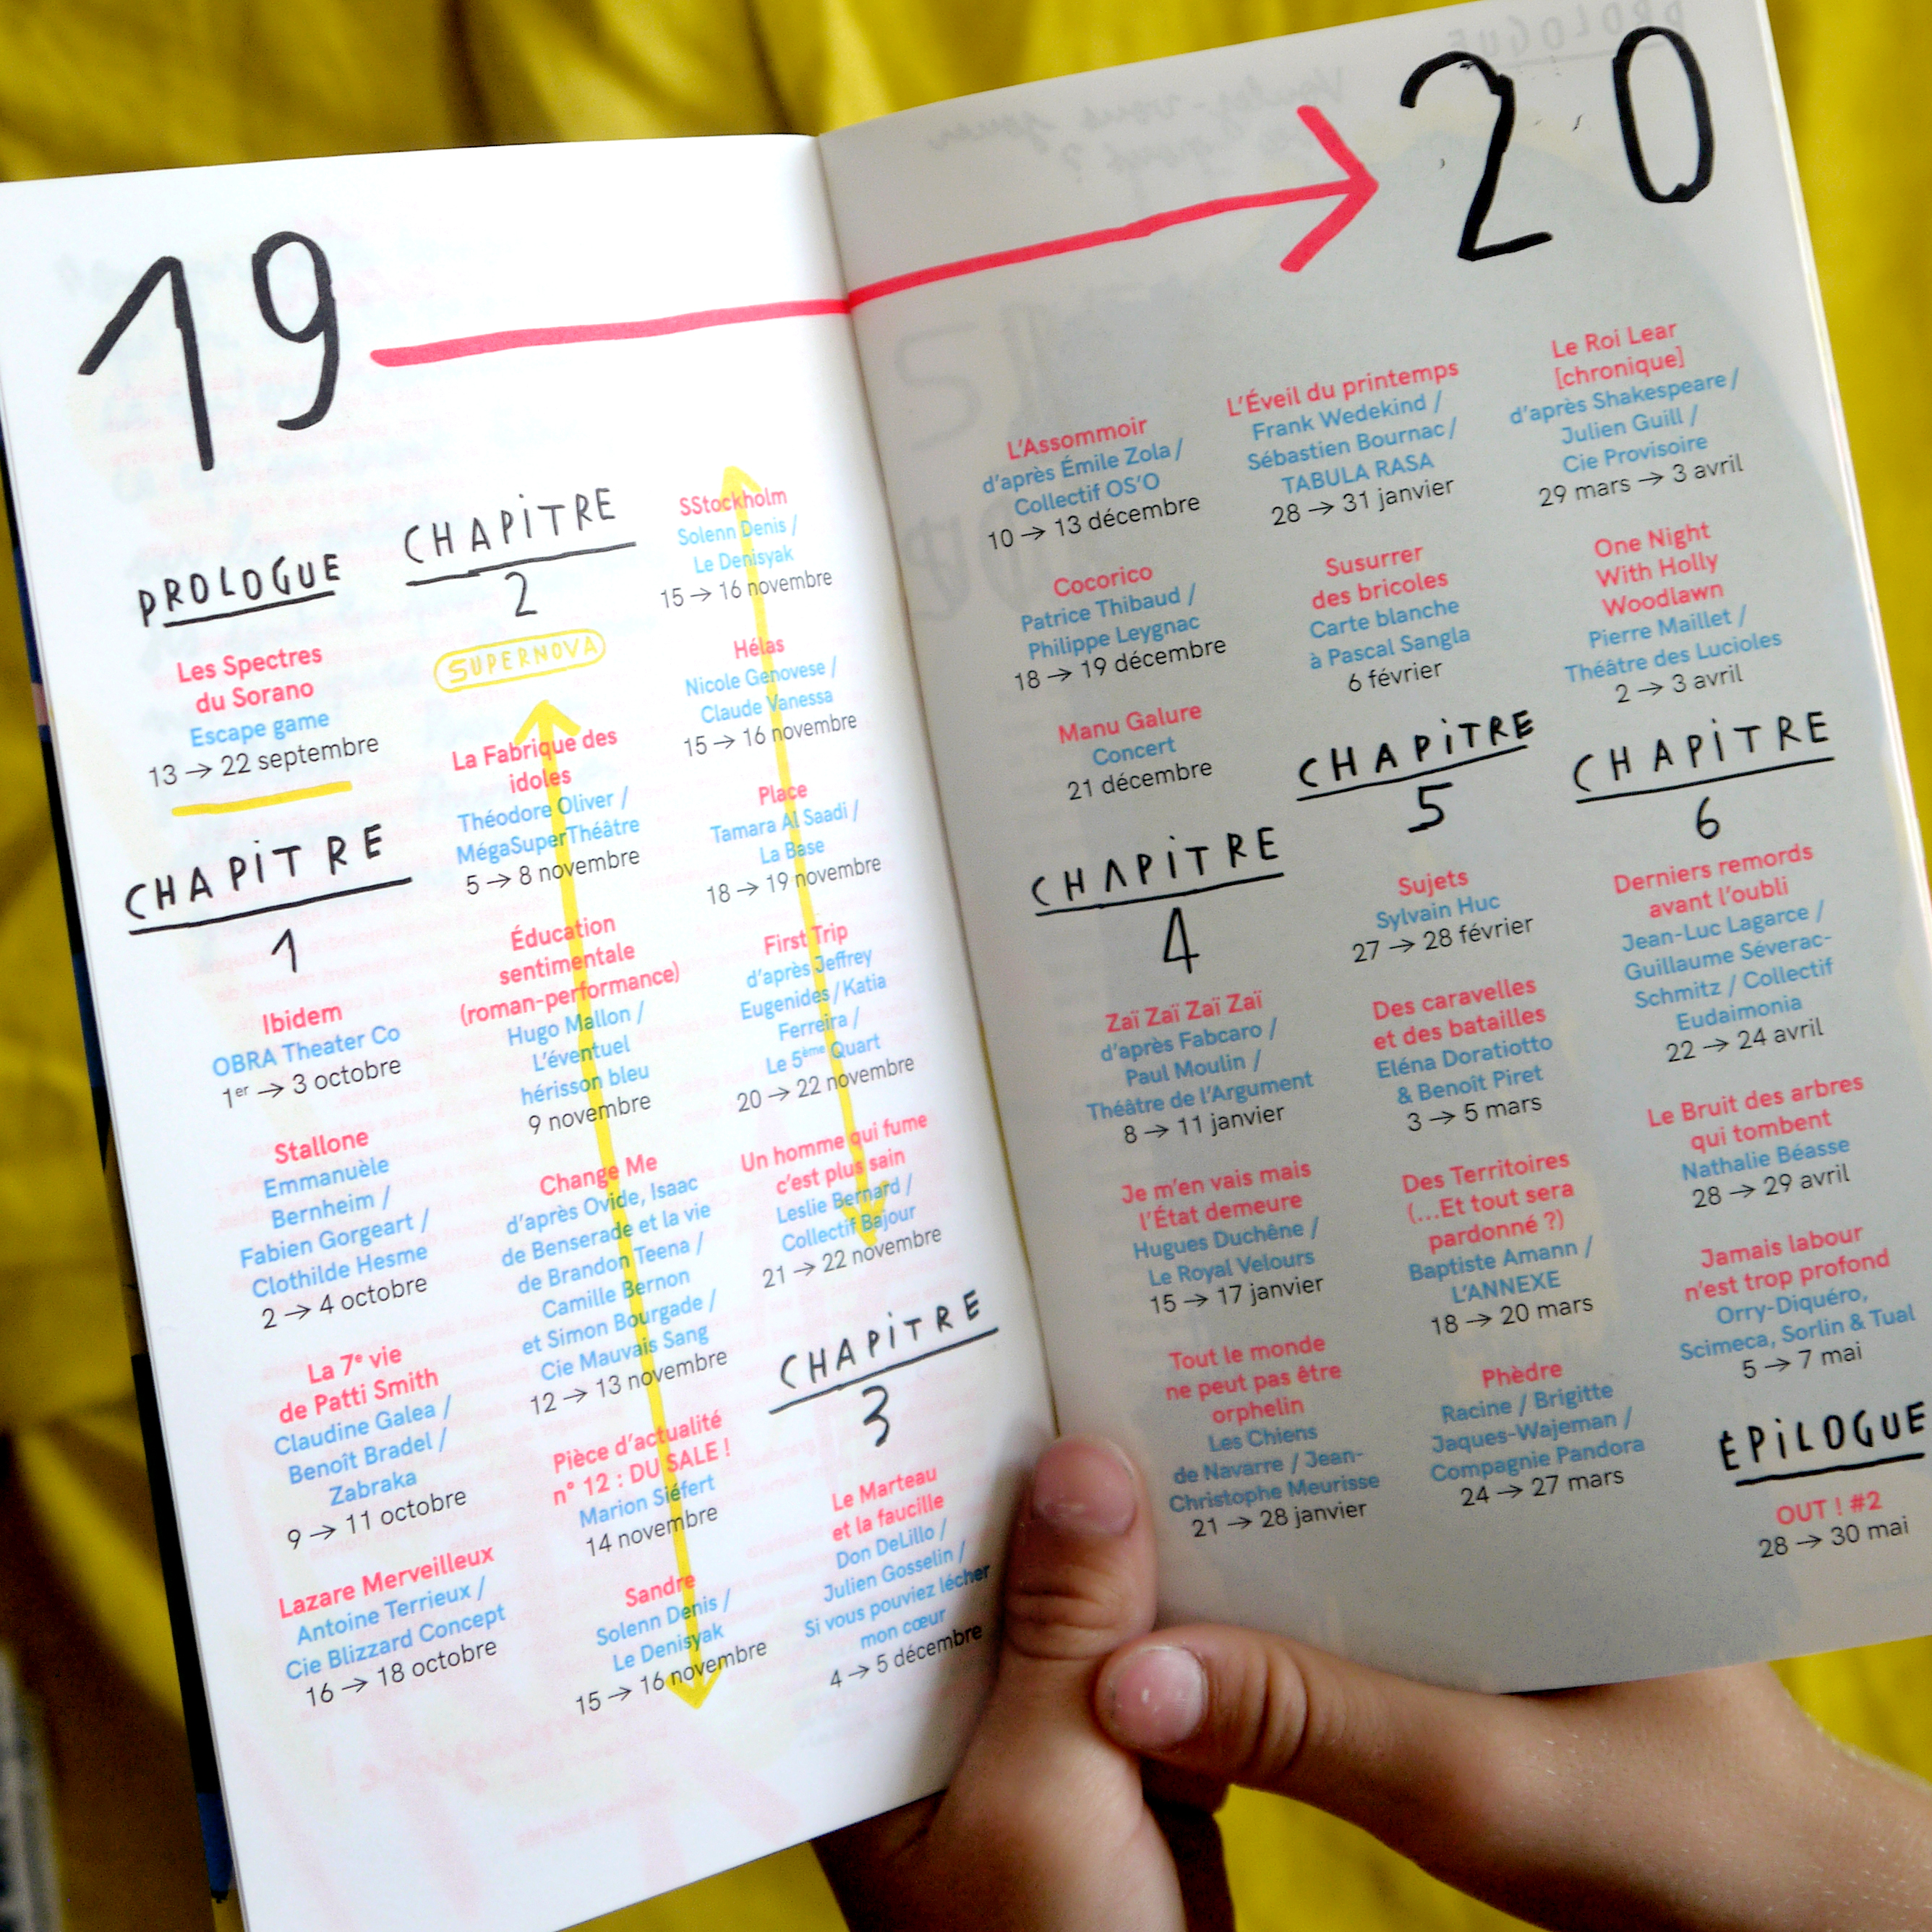 19
20
PROLOGUE
Les Spectres
du Sorano
Escape game
13 → 22 septembre
CHAPiTRE
1
Ibidem
OBRA Theater Co
1er → 3 octobre
Stallone
Emmanuèle
Bernheim /
Fabien Gorgeart /
Clothilde Hesme
2 → 4 octobre
La 7e vie
de Patti Smith
Claudine Galea /
Benoît Bradel /
Zabraka
9 → 11 octobre
Lazare Merveilleux
Antoine Terrieux /
Cie Blizzard Concept
16 → 18 octobre
CHAPiTRE
2
SUPERNOVA
La Fabrique des
idoles
Théodore Oliver /
MégaSuperThéâtre
5 → 8 novembre
Éducation
sentimentale
(roman-performance)
Hugo Mallon /
L'éventuel
hérisson bleu
9 novembre
Change Me
d'après Ovide, Isaac
de Benserade et la vie
de Brandon Teena /
Camille Bernon
et Simon Bourgade /
Cie Mauvais Sang
12 → 13 novembre
Pièce d'actualité
n° 12 : DU SALE !
Marion Siéfert
14 novembre
Sandre
Solenn Denis /
Le Denisyak
15 → 16 novembre
SStockholm
Solenn Denis /
Le Denisyak
15 → 16 novembre
Hélas
Nicole Genovese /
Claude Vanessa
15 → 16 novembre
Place
Tamara Al Saadi /
La Base
18 → 19 novembre
First Trip
d'après Jeffrey
Eugenides / Katia
Ferreira /
Le 5ème Quart
20 → 22 novembre
Un homme qui fume
c'est plus sain
Leslie Bernard /
Collectif Bajour
21 → 22 novembre
CHAPiTRE
3
Le Marteau
et la faucille
Don DeLillo /
Julien Gosselin /
Si vous pouviez lécher
mon cœur
4 → 5 décembre
L'Assommoir
d'après Émile Zola /
Collectif OS'O
10 → 13 décembre
Cocorico
Patrice Thibaud /
Philippe Leygnac
18 → 19 décembre
Manu Galure
Concert
21 décembre
CHAPiTRE
4
Zaï Zaï Zaï Zaï
d'après Fabcaro /
Paul Moulin /
Théâtre de l'Argument
8 → 11 janvier
Je m'en vais mais
l'État demeure
Hugues Duchêne /
Le Royal Velours
15 → 17 janvier
Tout le monde
ne peut pas être
orphelin
Les Chiens
de Navarre / Jean-
Christophe Meurisse
21 → 28 janvier
L'Éveil du printemps
Frank Wedekind /
Sébastien Bournac /
TABULA RASA
28 → 31 janvier
Susurrer
des bricoles
Carte blanche
à Pascal Sangla
6 février
CHAPiTRE
5
Sujets
Sylvain Huc
27 → 28 février
Des caravelles
et des batailles
Eléna Doratiotto
& Benoît Piret
3 → 5 mars
Des Territoires
(...Et tout sera
pardonné ?)
Baptiste Amann /
L'ANNEXE
18 → 20 mars
Phèdre
Racine / Brigitte
Jaques-Wajeman /
Compagnie Pandora
24 → 27 mars
Le Roi Lear
[chronique]
d'après Shakespeare /
Julien Guill /
Cie Provisoire
29 mars → 3 avril
One Night
With Holly
Woodlawn
Pierre Maillet /
Théâtre des Lucioles
2 → 3 avril
CHAPiTRE
6
Derniers remords
avant l'oubli
Jean-Luc Lagarce /
Guillaume Séverac-
Schmitz / Collectif
Eudaimonia
22 → 24 avril
Le Bruit des arbres
qui tombent
Nathalie Béasse
28 → 29 avril
Jamais labour
n'est trop profond
Orry-Diquéro,
Scimeca, Sorlin & Tual
5 → 7 mai
ÉPiLOGUE
OUT ! #2
28 → 30 mai